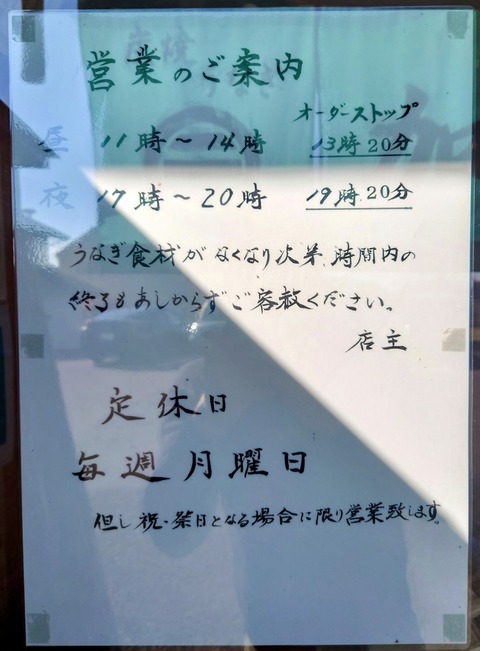 営業のご案内
オーダーストップ
昼 11時～14時 13時20分
夜 17時～20時 19時20分
うなぎ食材がなくなり次第、時間内の
終了もあしからずご容赦ください。
店主
定休日
毎週月曜日
但し祝・祭日となる場合に限り営業致します。